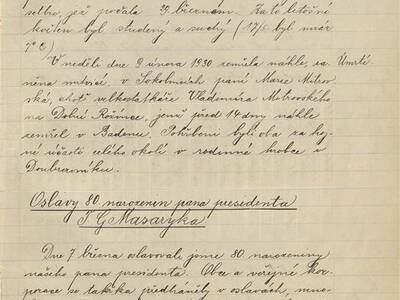 setbu, jež počala 29. březnem. Za to letošní
květen byl studený a suchý (17/5 byl mráz
7° C)
V neděli dne 9. února 1930 zemřela náhle
v Sokolnicích paní Marie Mitrov-
ská, choť velkostatkáře Vladimíra Mitrovského
na Dolní Rožínce, jenž před 14 dny náhle
zemřel v Badenu. Pohřbeni byli oba za hoj-
né účasti celého okolí v rodinné hrobce v
Doubravníku.
Oslavy 80. narozenin pana presidenta
T. G. Masaryka!
Dne 7. března oslavovali jsme 80. narozeniny
našeho pana presidenta. Obce a veřejné kor-
porace se takřka předháněly v oslavách, mno-